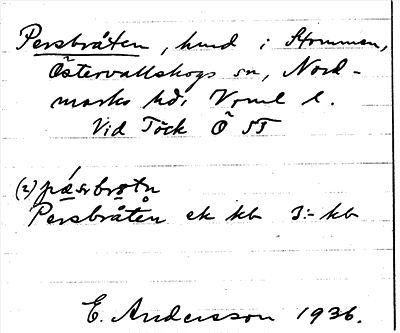 Persbråten, hmd i Stommen,
Östervallskogs sn, Nord-
marks hd, Vrml l.
Vid Töck Ö 5T
(2) pæsrbrotn
Persbråten ek kb 3:- kb
E. Andersson 1936.